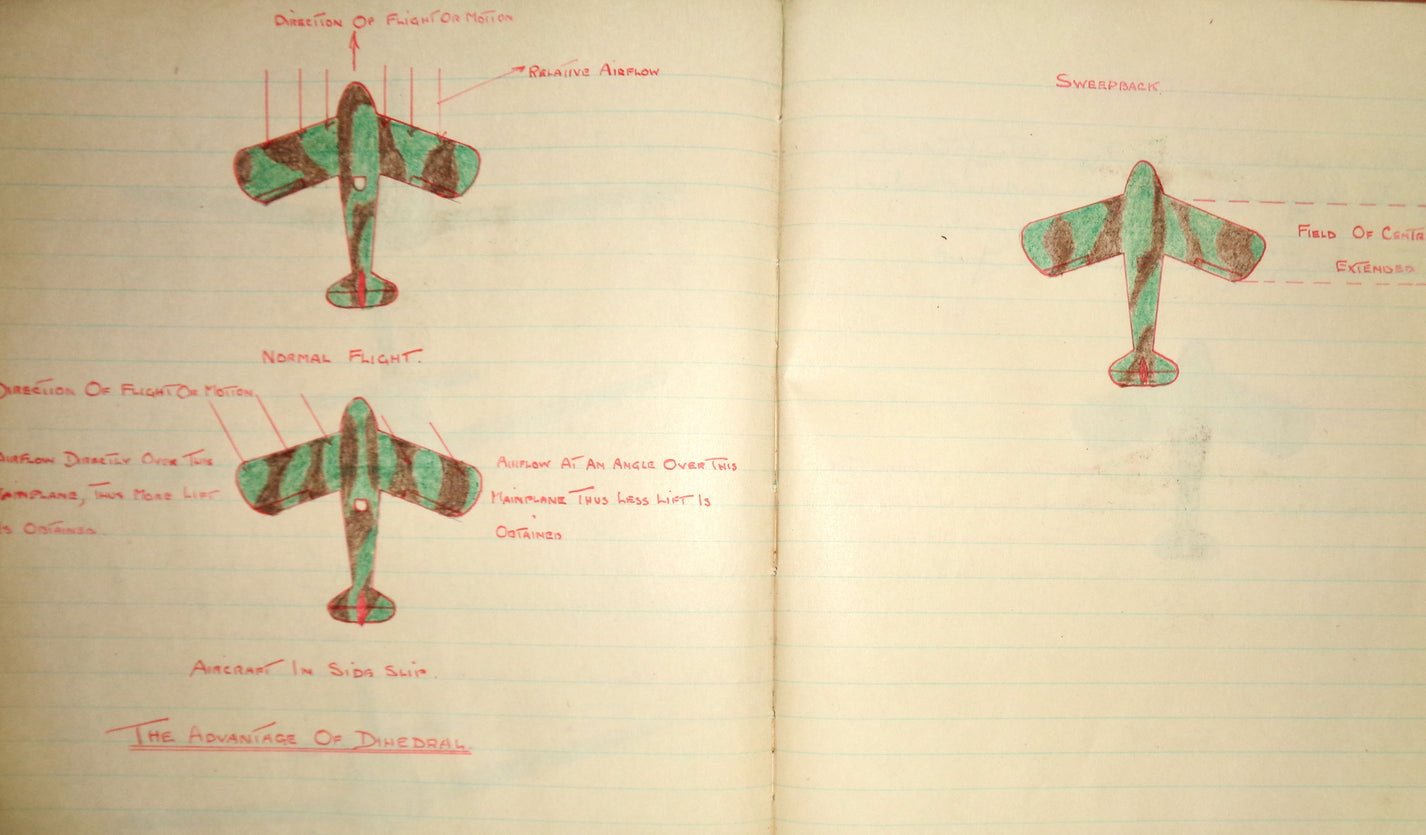 DIRECTION OF FLIGHT OR MOTION
RELATIVE AIRFLOW
NORMAL FLIGHT.
DIRECTION OF FLIGHT OR MOTION
AIRFLOW DIRECTLY OVER THIS
MAINPLANE, THUS MORE LIFT
IS OBTAINED.
AIRFLOW AT AN ANGLE OVER THIS
MAINPLANE THUS LESS LIFT IS
OBTAINED
AIRCRAFT IN SIDE SLIP.
THE ADVANTAGE OF DIHEDRAL.
SWEEPBACK
FIELD OF
EXTENDED